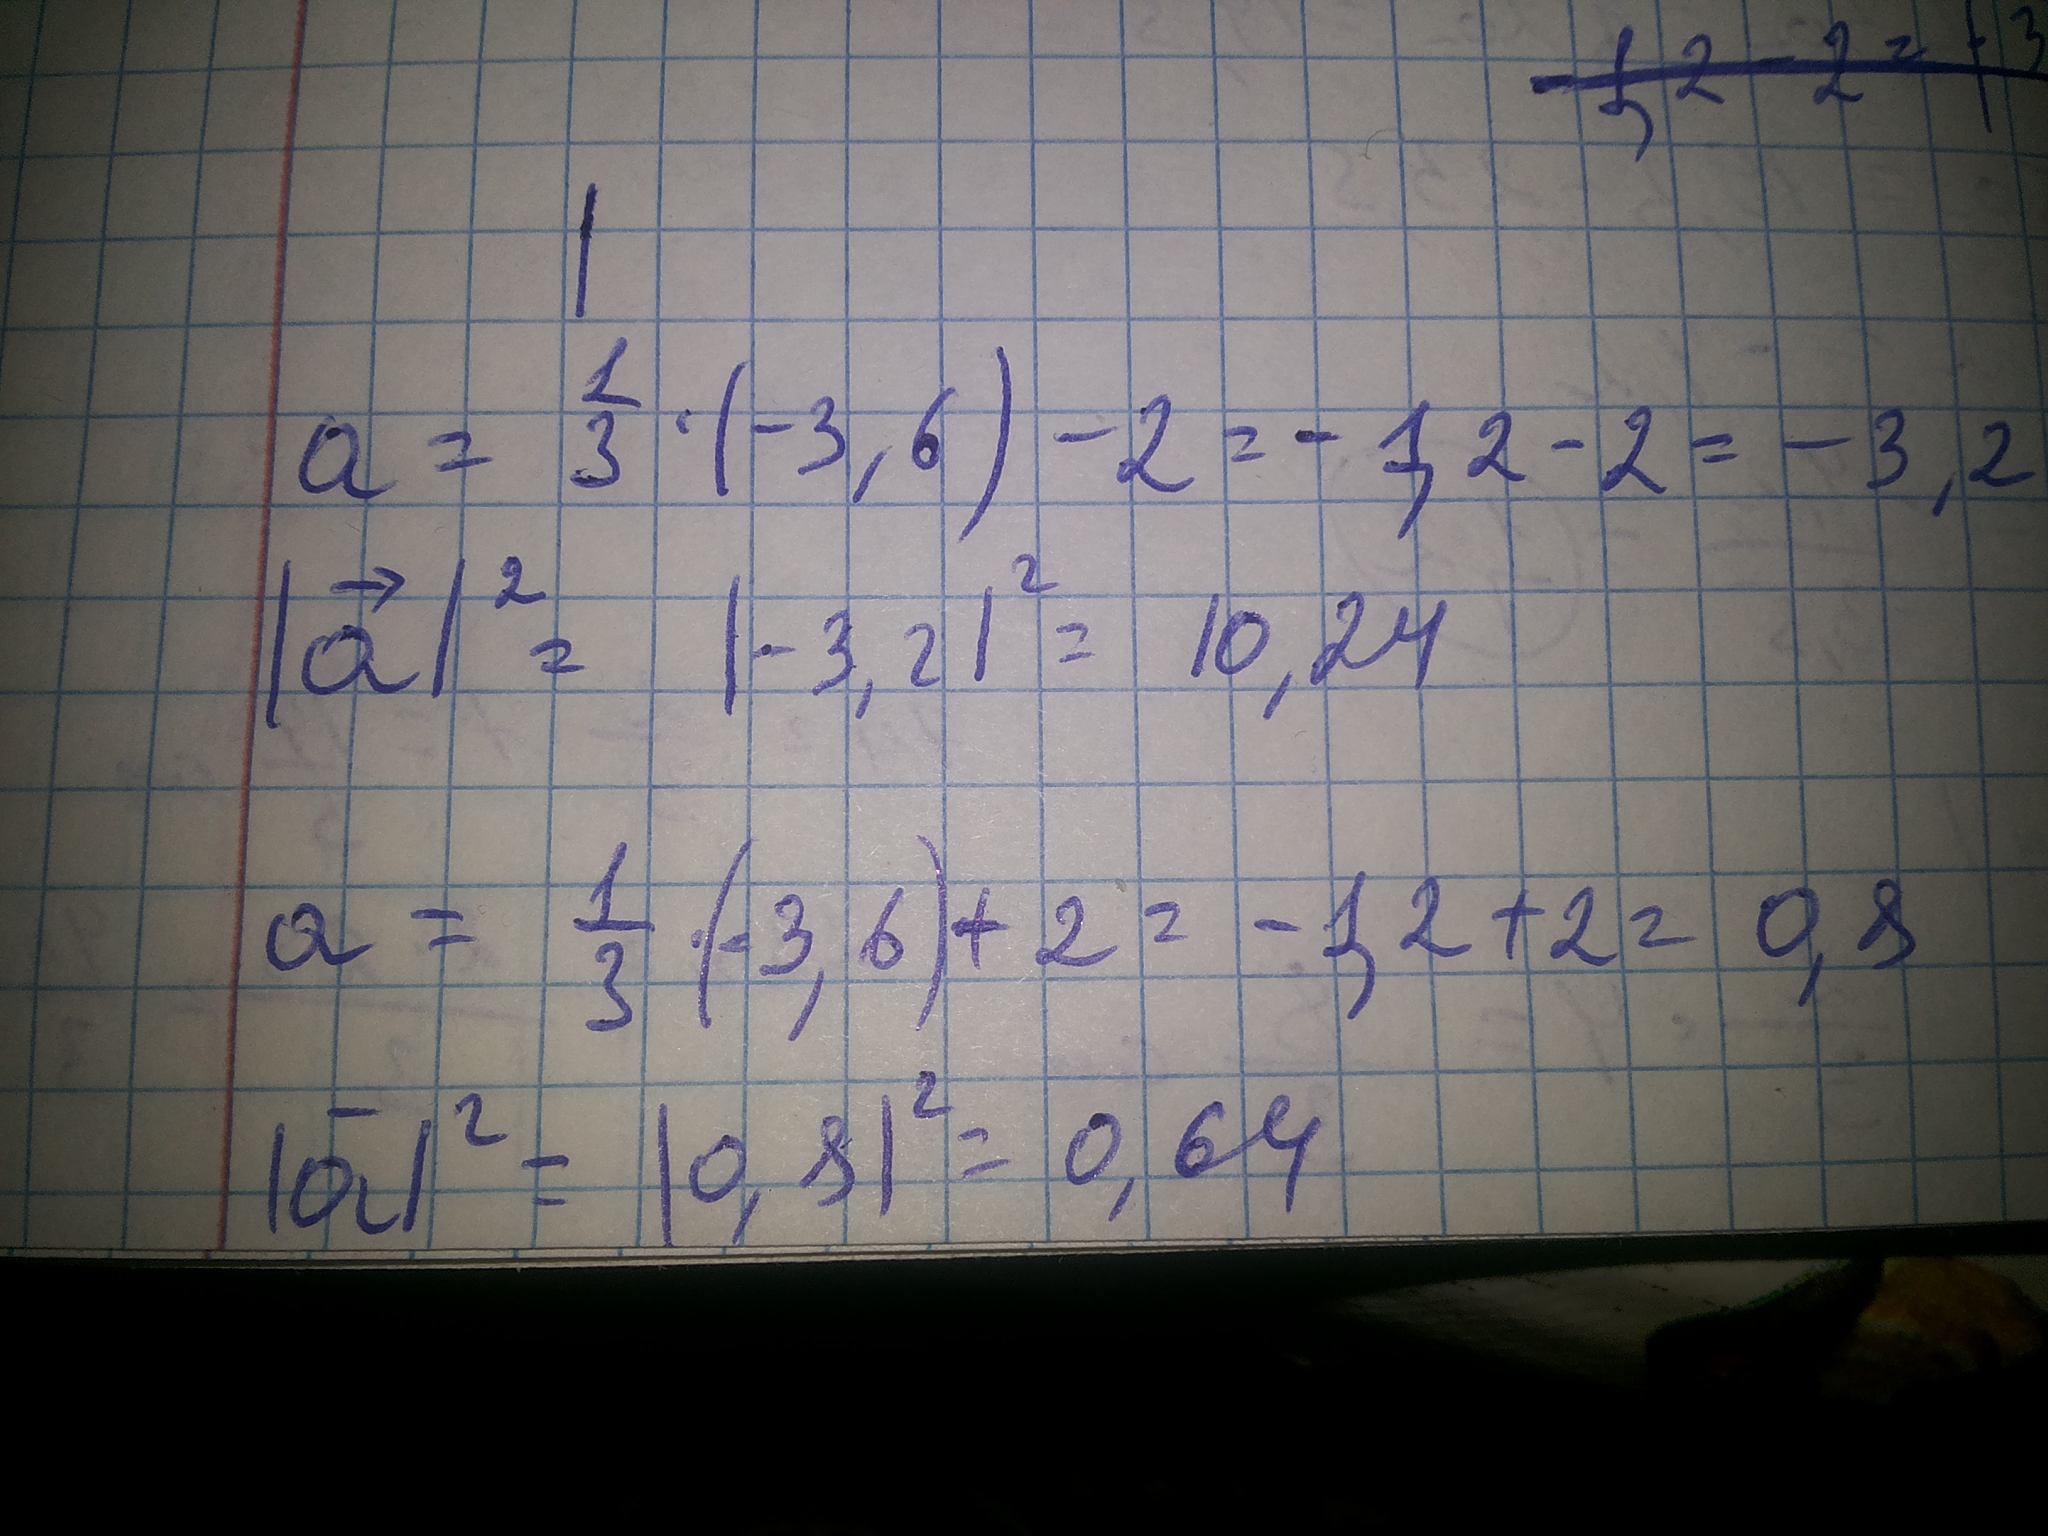 -1,2 - 2 = -3
a = 1/3 · (-3,6) - 2 = -1,2 - 2 = -3,2
|a⃗|² = |-3,2|² = 10,24
a = 1/3 · (-3,6) + 2 = -1,2 + 2 = 0,8
|a̅|² = |0,8|² = 0,64